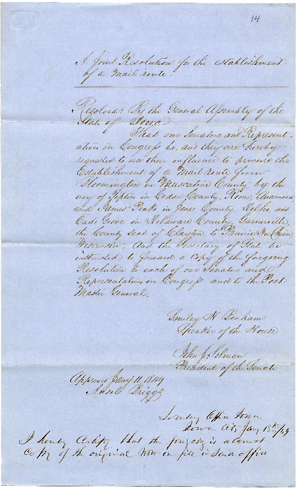 14
A Joint Resolution for the establishment
of a Mail route
Resolved By the General Assembly of the
State of Iowa
That our Senators and Represent
atives in Congress be, and they are hereby
requested to use their influence to procure the
Establishment of a Mail route from
Bloomington in Muscatine County by the
way of Tipton in Cedar County, Rome, Anamosa
and in Jones County,
Eads Grove in Delaware County,
the County Seat of Clayton to Prairie Du Chien
Wisconsin, And the Secretary of State be
instructed to forward a copy of the foregoing
Resolution to each of our Senators and
Representatives in Congress and to the Post
Master General.
Smiley H Bonham
Speaker of the House
John J Selman
President of the Senate
Approved Jany 11 1849
Ansel Briggs
Office Iowa
Iowa City Jany
I hereby Certify that the foregoing is a correct
Copy of the original now on file in Said office